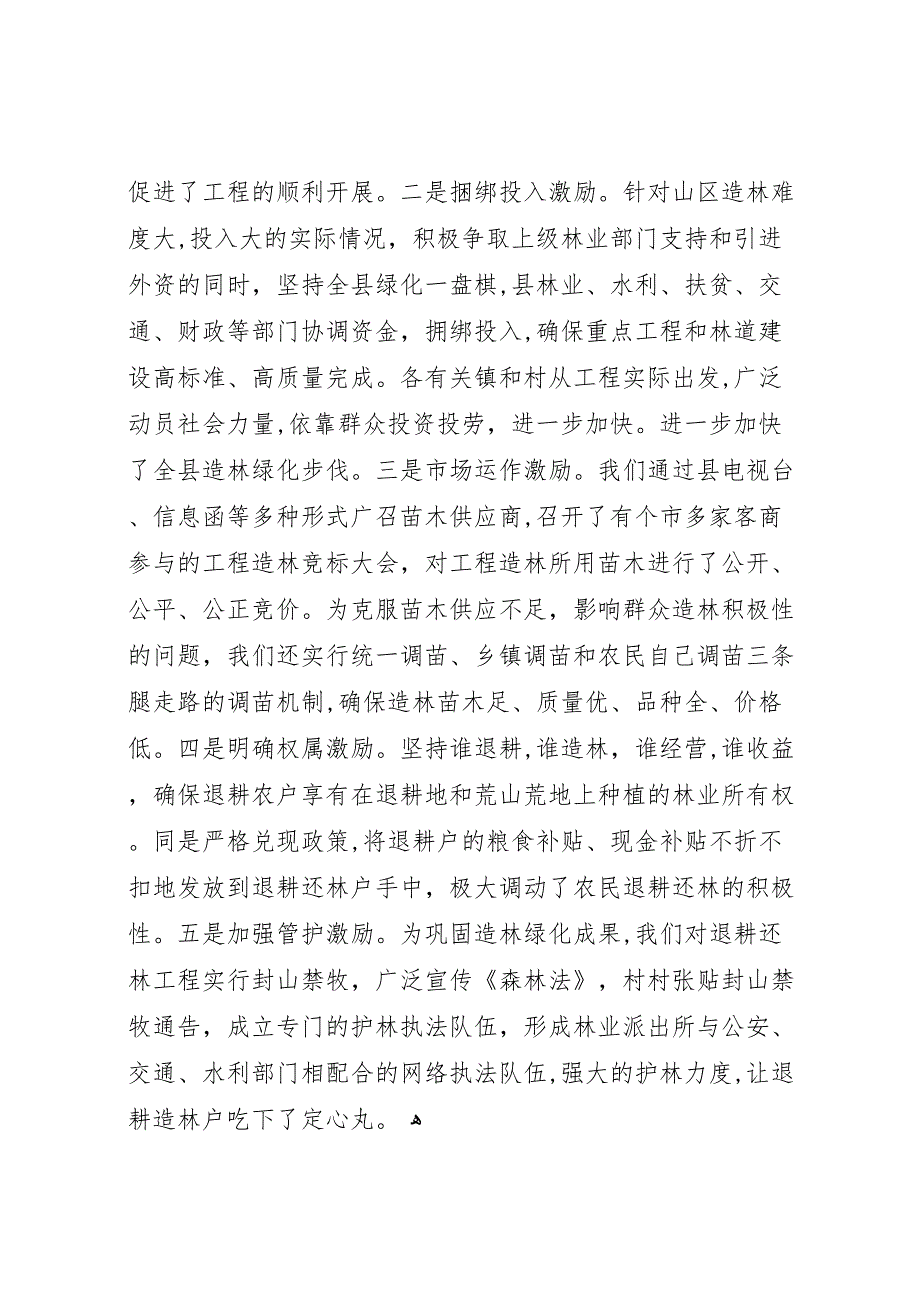 促进了工程的顺利开展。二是捆绑投入激励。针对山区造林难
度大,投入大的实际情况，积极争取上级林业部门支持和引进
外资的同时，坚持全县绿化一盘棋,县林业、水利、扶贫、交
通、财政等部门协调资金，拥绑投入,确保重点工程和林道建
设高标准、高质量完成。各有关镇和村从工程实际出发,广泛
动员社会力量,依靠群众投资投劳，进一步加快。进一步加快
了全县造林绿化步伐。三是市场运作激励。我们通过县电视台
、信息函等多种形式广召苗木供应商,召开了有个市多家客商
参与的工程造林竞标大会，对工程造林所用苗木进行了公开、
公平、公正竞价。为克服苗木供应不足，影响群众造林积极性
的问题，我们还实行统一调苗、乡镇调苗和农民自己调苗三条
腿走路的调苗机制,确保造林苗木足、质量优、品种全、价格
低。四是明确权属激励。坚持谁退耕,谁造林，谁经营,谁收益
，确保退耕农户享有在退耕地和荒山荒地上种植的林业所有权
。同是严格兑现政策,将退耕户的粮食补贴、现金补贴不折不
扣地发放到退耕还林户手中，极大调动了农民退耕还林的积极
性。五是加强管护激励。为巩固造林绿化成果,我们对退耕还
林工程实行封山禁牧，广泛宣传《森林法》，村村张贴封山禁
牧通告，成立专门的护林执法队伍，形成林业派出所与公安、
交通、水利部门相配合的网络执法队伍,强大的护林力度,让退
耕造林户吃下了定心丸。 ﻫ